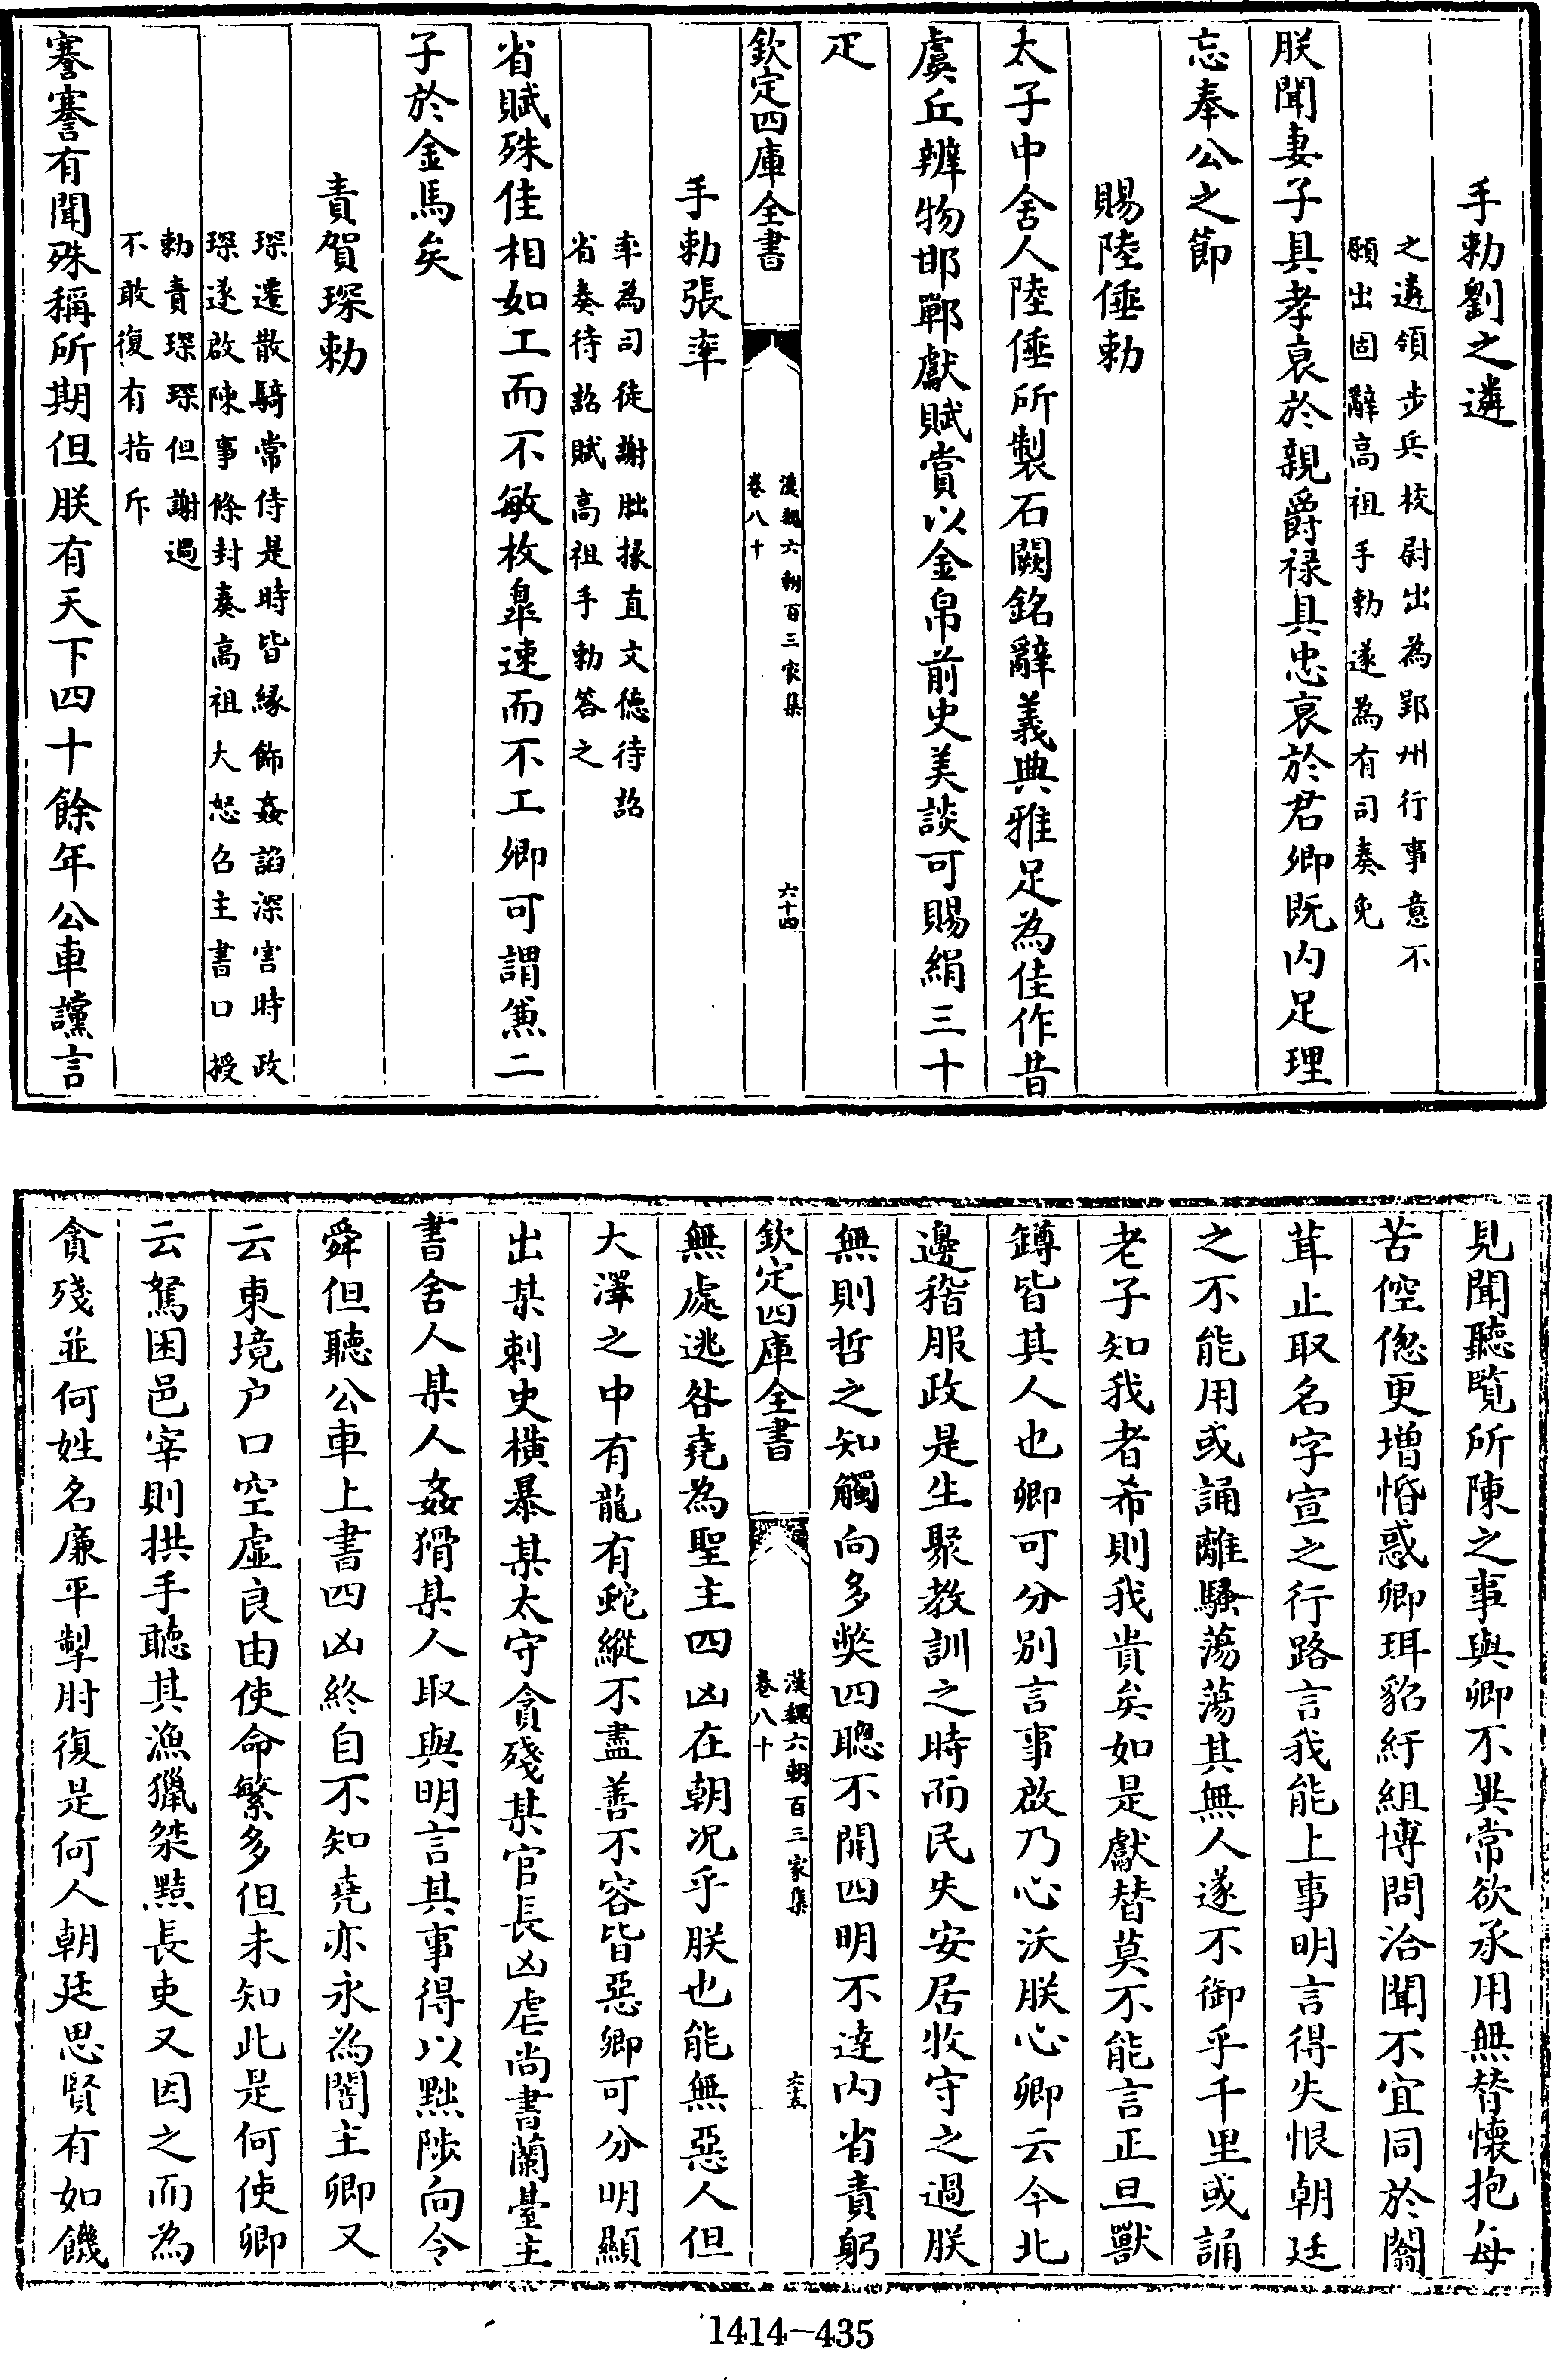 手勅劉之遴
之遴領步兵校尉出為郢州行事意不
願出固辭高祖手勅遂為有司奏免
朕聞妻子具孝衰於親爵禄具忠衰於君卿既内足理
忘奉公之節
賜陸倕勅
太子中舍人陸倕所製石闕銘辭義典雅足為佳作昔
虞丘辨物邯鄲獻賦賞以金帛前史美談可賜絹三十
疋
欽定四庫全書
漢魏六朝百三家集
卷八十
六十四
手勅張率
率為司徒謝朏掾直文德待詔
省奏待詔賦高祖手勅答之
省賦殊佳相如工而不敏枚臯速而不工卿可謂兼二
子於金馬矣
責賀琛勅
琛遷散騎常侍是時皆緣飾姦謟深害時政
琛遂啟陳事條封奏高祖大怒召主書口授
勅責琛琛但謝過
不敢復有指斥
謇謇有聞殊稱所期但朕有天下四十餘年公車讜言
見聞聽覧所陳之事與卿不異常欲承用無替懐抱每
苦倥偬更增惛惑卿珥貂紆組博問洽聞不宜同於闒
茸止取名字宣之行路言我能上事明言得失恨朝廷
之不能用或誦離騷蕩蕩其無人遂不御乎千里或誦
老子知我者希則我貴矣如是獻替莫不能言正旦獸
罇皆其人也卿可分別言事啟乃心沃朕心卿云今北
邊稽服政是生聚教訓之時而民失安居牧守之過朕
無則哲之知觸向多獘四聰不開四明不達内省責躬
欽定四庫全書
漢魏六朝百三家集
卷八十
六十五
無處逃咎堯為聖主四凶在朝况乎朕也能無惡人但
大澤之中有龍有蛇縱不盡善不容皆惡卿可分明顯
出某刺史橫暴某太守貪殘某官長凶虐尚書蘭臺主
書舍人某人姦猾某人取與明言其事得以黜陟向令
舜但聽公車上書四凶終自不知堯亦永為闇主卿又
云東境户口空虛良由使命繁多但未知此是何使卿
云駑困邑宰則拱手聽其漁獵桀黠長吏又因之而為
貪殘並何姓名廉平掣肘復是何人朝廷思賢有如饑
1414-435